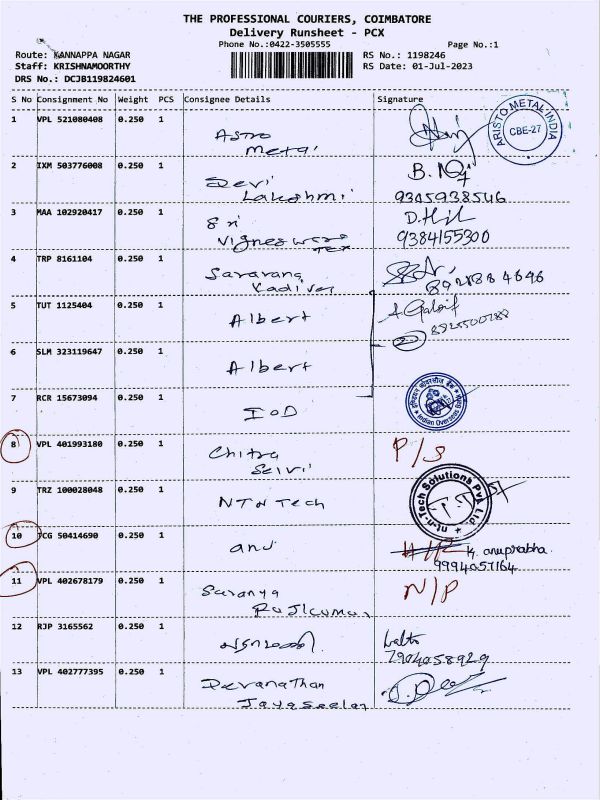 THE PROFESSIONAL COURIERS, COIMBATORE
Delivery Runsheet - PCX
Phone No.:0422-3505555 Page No.:1
Route: KANNAPPA NAGAR RS No.: 1198246
Staff: KRISHNAMOORTHY RS Date: 01-Jul-2023
DRS No.: DCJB119824601
S No Consignment No Weight PCS Consignee Details Signature
1 VPL 521080408 0.250 1 Astro
Metal
ARISTO METAL INDIA
CBE-27
2 IXM 503776008 0.250 1 Devi
Lakshmi
9345938546
3 MAA 102920417 0.250 1 Sri
Vigneswara
Tex
9384155300
4 TRP 8161104 0.250 1 Saravana
Vadivel
5 TUT 1125404 0.250 1 Albert
8925500788
6 SLM 323119647 0.250 1 Albert
2
7 RCR 15673094 0.250 1 IOD
Indian Overseas
8 VPL 401993180 0.250 1 Chitra
Selvi
P/S
9 TRZ 100028048 0.250 1 NTN Tech
nt-n-Tech Solutions Pvt. Ltd.
10 TCG 50414690 0.250 1 anu
K. anuprabha
9994057164
11 VPL 402678179 0.250 1 Saranya
Rajkumar
N/P
12 RJP 3165562 0.250 1
Lalta
7904058929
13 VPL 402777395 0.250 1 Devanathan
Jayaseelan